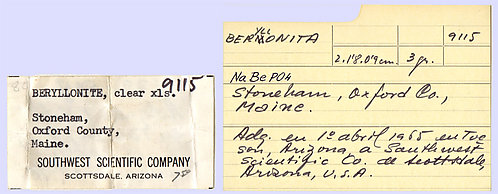 BERYLLONITE, clear xls. 9115
Stoneham,
Oxford County,
Maine.
SOUTHWEST SCIENTIFIC COMPANY
SCOTTSDALE, ARIZONA
YLL
BERMONITA
2.1'8.0'9cm.
3 gr.
9115
NaBePO4
Stoneham, Oxford Co.,
Maine.
Adq. en 1º abril 1965 en Tuc
son, Arizona, a Southwest
Scientific Co. de Scottsdale,
Arizona, U.S.A.